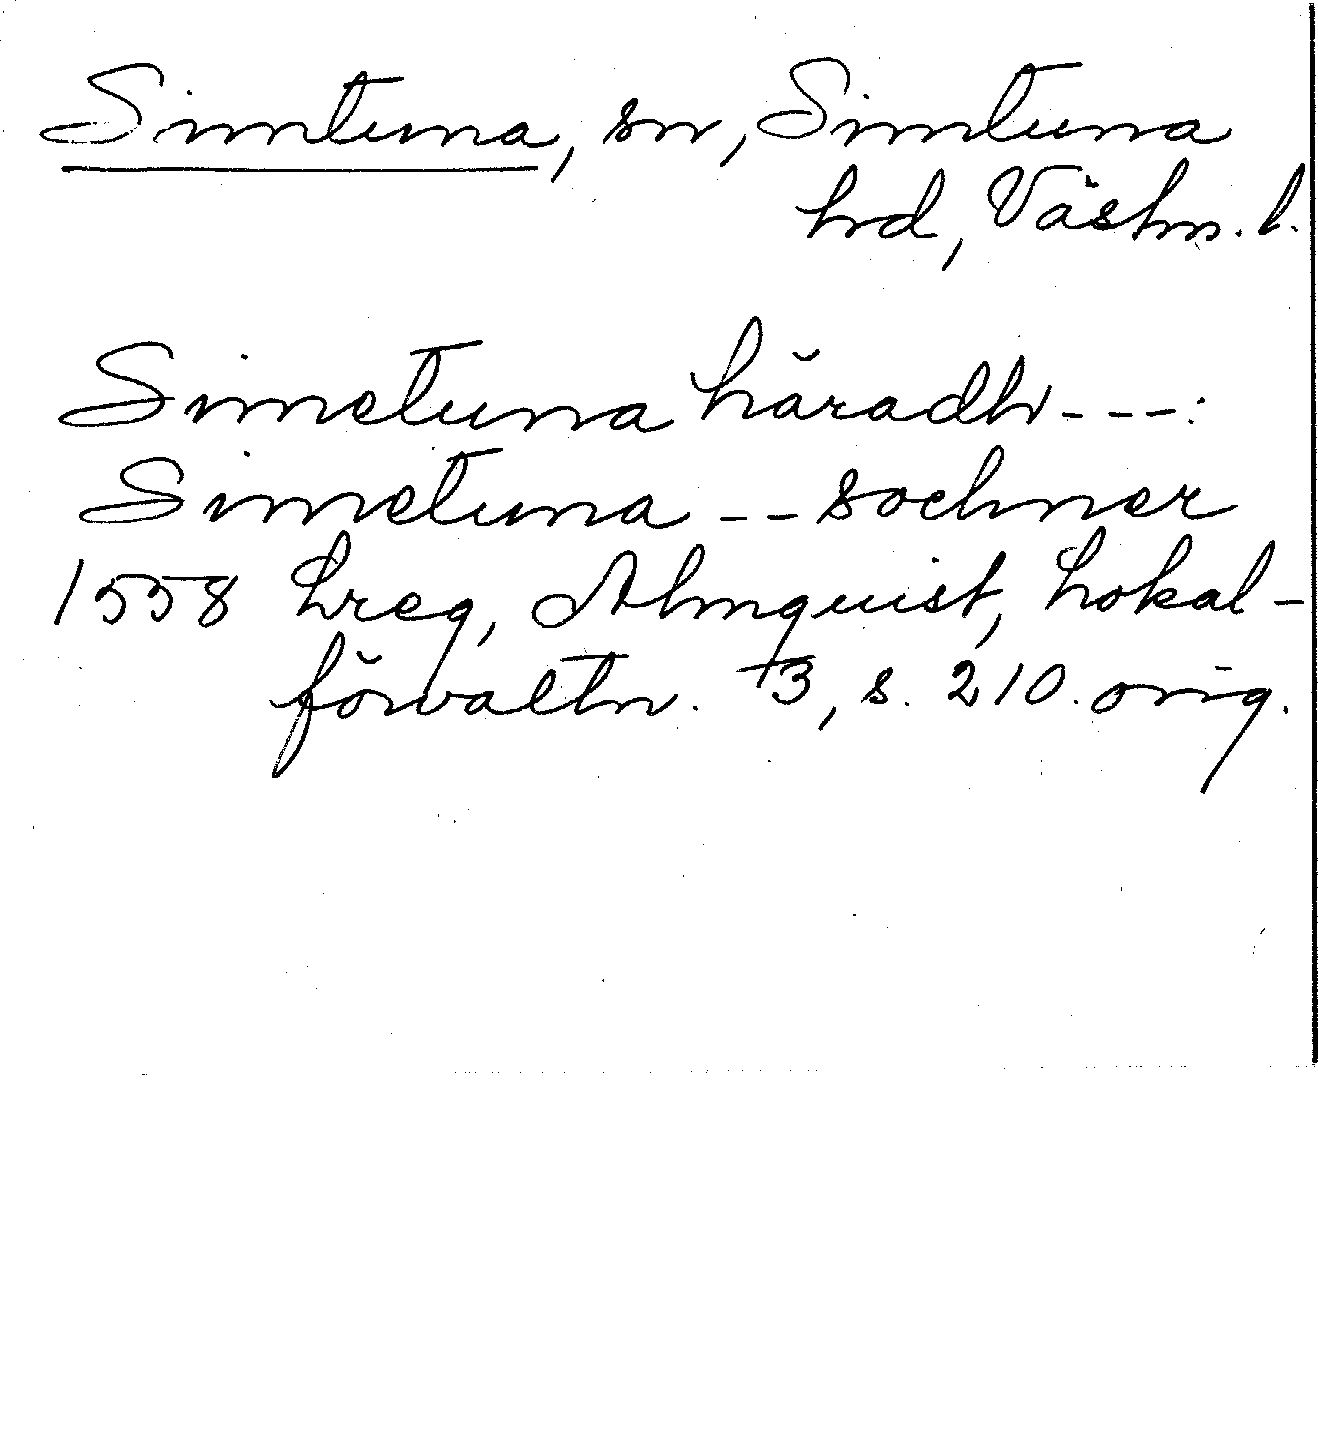 Simtuna, sn, Simtuna
hrd, Västm. l.
Simetuna häradh ---:
Simetuna -- sochner
1558 hreg, Almquist, Lokal-
förvaltn. +3, s. 210. orig.